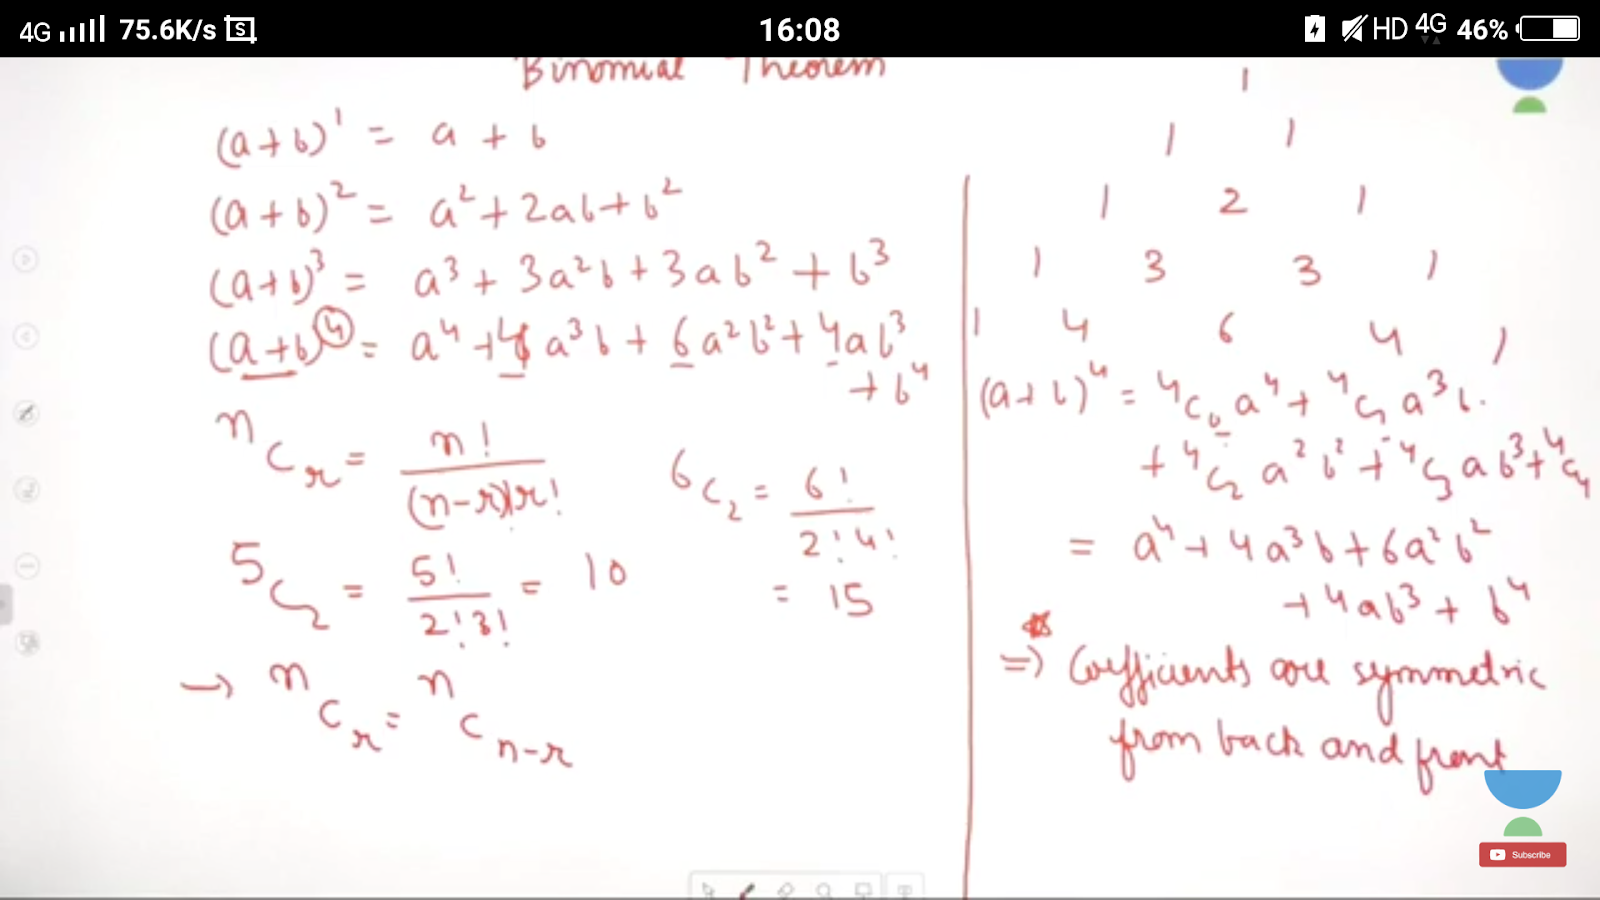 4G 75.6K/s 16:08 HD 4G 46%
Binomial Theorem
(a+b)¹ = a + b
(a+b)² = a² + 2ab + b²
(a+b)³ = a³ + 3a²b + 3ab² + b³
(a+b)⁴ = a⁴ + 4a³b + 6a²b² + 4ab³
+ b⁴
ⁿCᵣ = n! / (n-r)!r!
⁶C₂ = 6! / 2!4!
= 15
⁵C₂ = 5! / 2!3! = 10
→ ⁿCᵣ = ⁿCₙ₋ᵣ
1
1 1
1 2 1
1 3 3 1
1 4 6 4 1
(a+b)⁴ = ⁴C₀a⁴ + ⁴C₁a³b
+ ⁴C₂a²b² + ⁴C₃ab³ + ⁴C₄
= a⁴ + 4a³b + 6a²b²
+ 4ab³ + b⁴
⇒ Coefficients are symmetric
from back and front
Subscribe